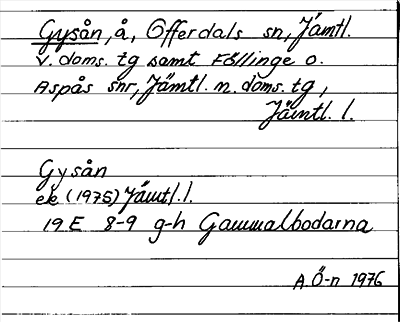 Gysån, å, Offerdals sn, Jämtl.
v. doms. tg samt Föllinge o.
Aspås snr, Jämtl. n. doms. tg,
Jämtl. l.
Gysån
ek (1975) Jämtl. l.
19 E 8-9 g-h Gammalbodarna
A Ö-n 1976